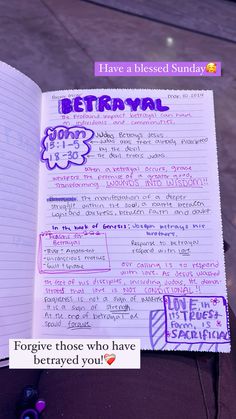 Have a blessed Sunday🥰
Mar. 10, 2024
BETRAYAL
The profound impact betrayal can have
on individuals and communities.
John
13:1-5
18-30
Judas Betrays Jesus
Judas was there already prompted
by the devil
The devil enters Judas
When a betrayal occurs, grace
whispers the promise of a greater
transforming WOUNDS INTO WISDOM!!
The manifestation of a deeper
struggle within the soul. A battle between
light and darkness, between faith and doubt.
In the book of Genesis; Joseph betrays his
brothers.
Betrayal
Response to betrayal
respond with love.
- unconscious motives
- Guilt & shame
Our calling is to respond
with love. As Jesus washed
the feet of his disciples, including Judas, He demon-
strates that love is NOT CONDITIONAL!!
Forgiveness is not a sign of weakness
it is a sign of strength.
At the end of betrayal
LOVE, in
its TRUEST
Form, is
SACRIFICIAL
Forgive those who have
betrayed you!❤️‍🩹